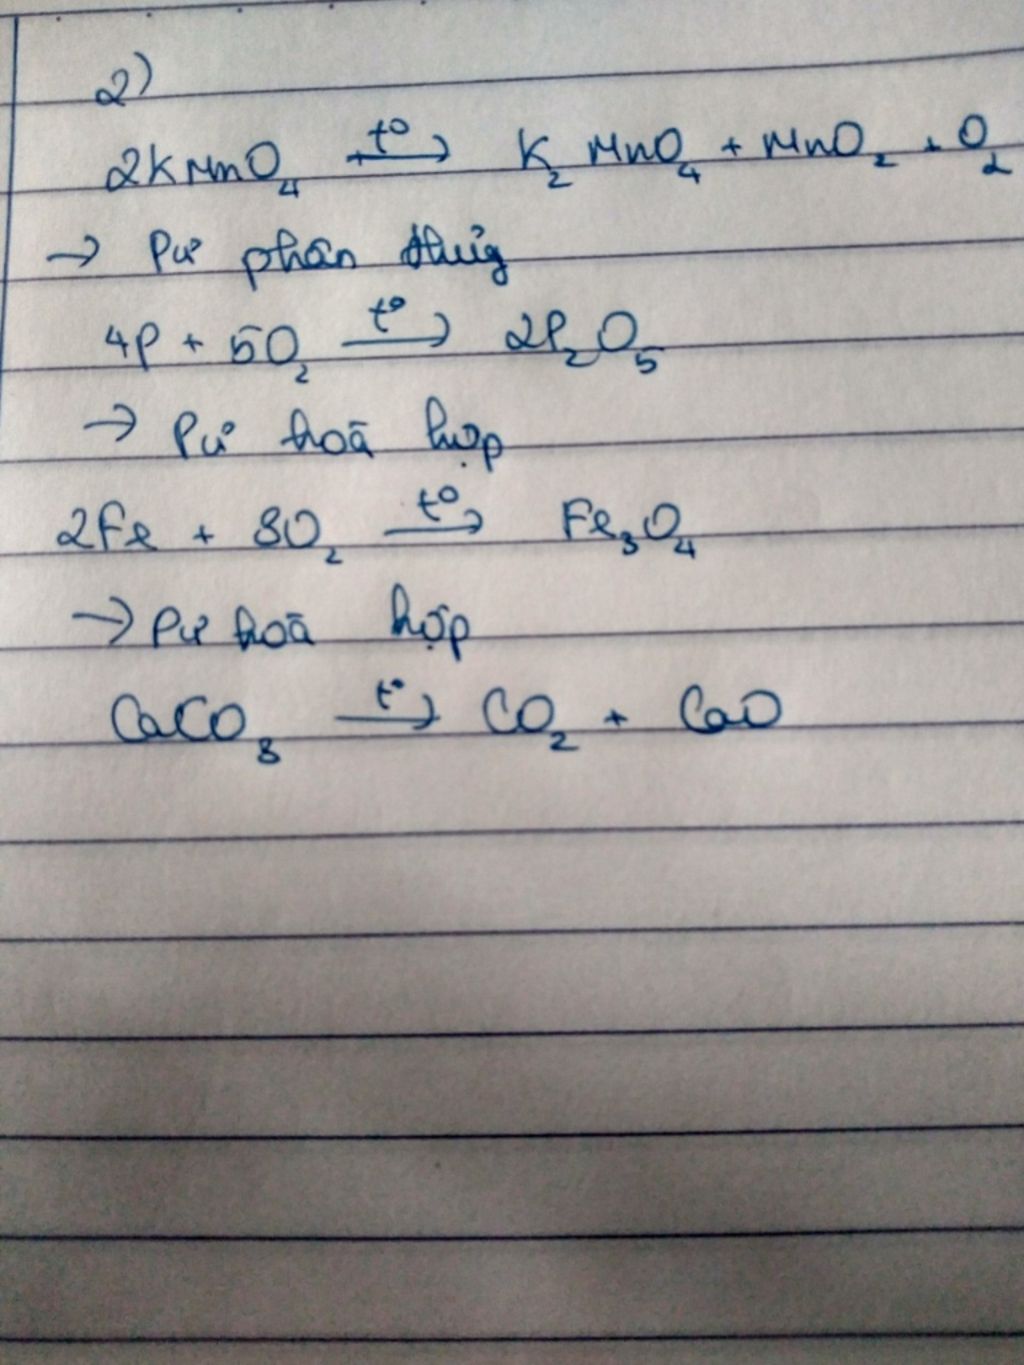 2)
2KMnO₄ –t°→ K₂MnO₄ + MnO₂ + O₂
→ Pư phân thủy
4P + 5O₂ –t°→ 2P₂O₅
→ Pư hoá hợp
2Fe + 3O₂ –t°→ Fe₃O₄
→ Pư hoá hợp
CaCO₃ –t°→ CO₂ + CaO